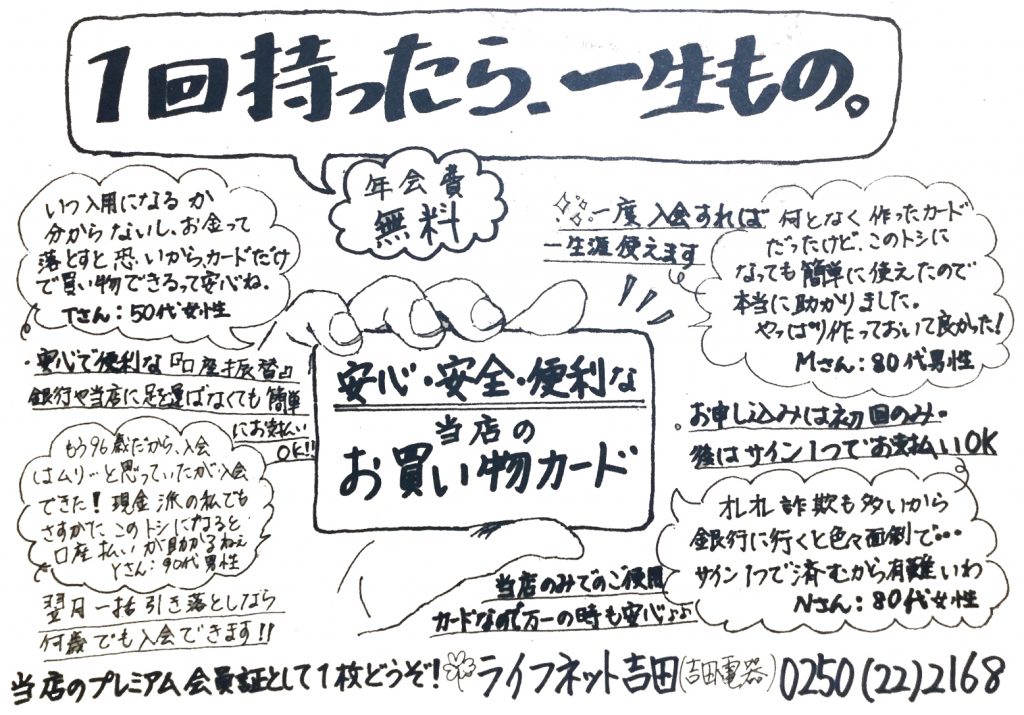 1回持ったら、一生もの。
年会費
無料
いつ入用になるか
分からないし、お金って
落とすと恐いから、カードだけ
で買い物できるって安心ね。
Tさん:50代女性
一度入会すれば
一生涯使えます
何となく作ったカード
だったけど、このトシに
なっても簡単に使えたので
本当に助かりました。
やっぱり作っておいて良かった!
Mさん:80代男性
・安心で便利な『口座振替』
銀行や当店に足を運ばなくても簡単
にお支払い
OK!!
安心・安全・便利な
当店の
お買い物カード
・お申し込みは初回のみ。
後はサイン1つでお支払いOK
もう96歳だから、入会
はムリ…と思っていたが入会
できた!現金派の私でも
さすがに、このトシになると
口座払いが助かるねぇ
Yさん:90代男性
オレオレ詐欺も多いから
銀行に行くと色々面倒で…
サイン1つで済むから有難いわ
Nさん:80代女性
翌月一括引き落としなら
何歳でも入会できます!!
当店のみでのご使用
カードなので万一の時も安心♪♪
当店のプレミアム会員証として1枚どうぞ!ライフネット吉田(吉田電器)0250(22)2168